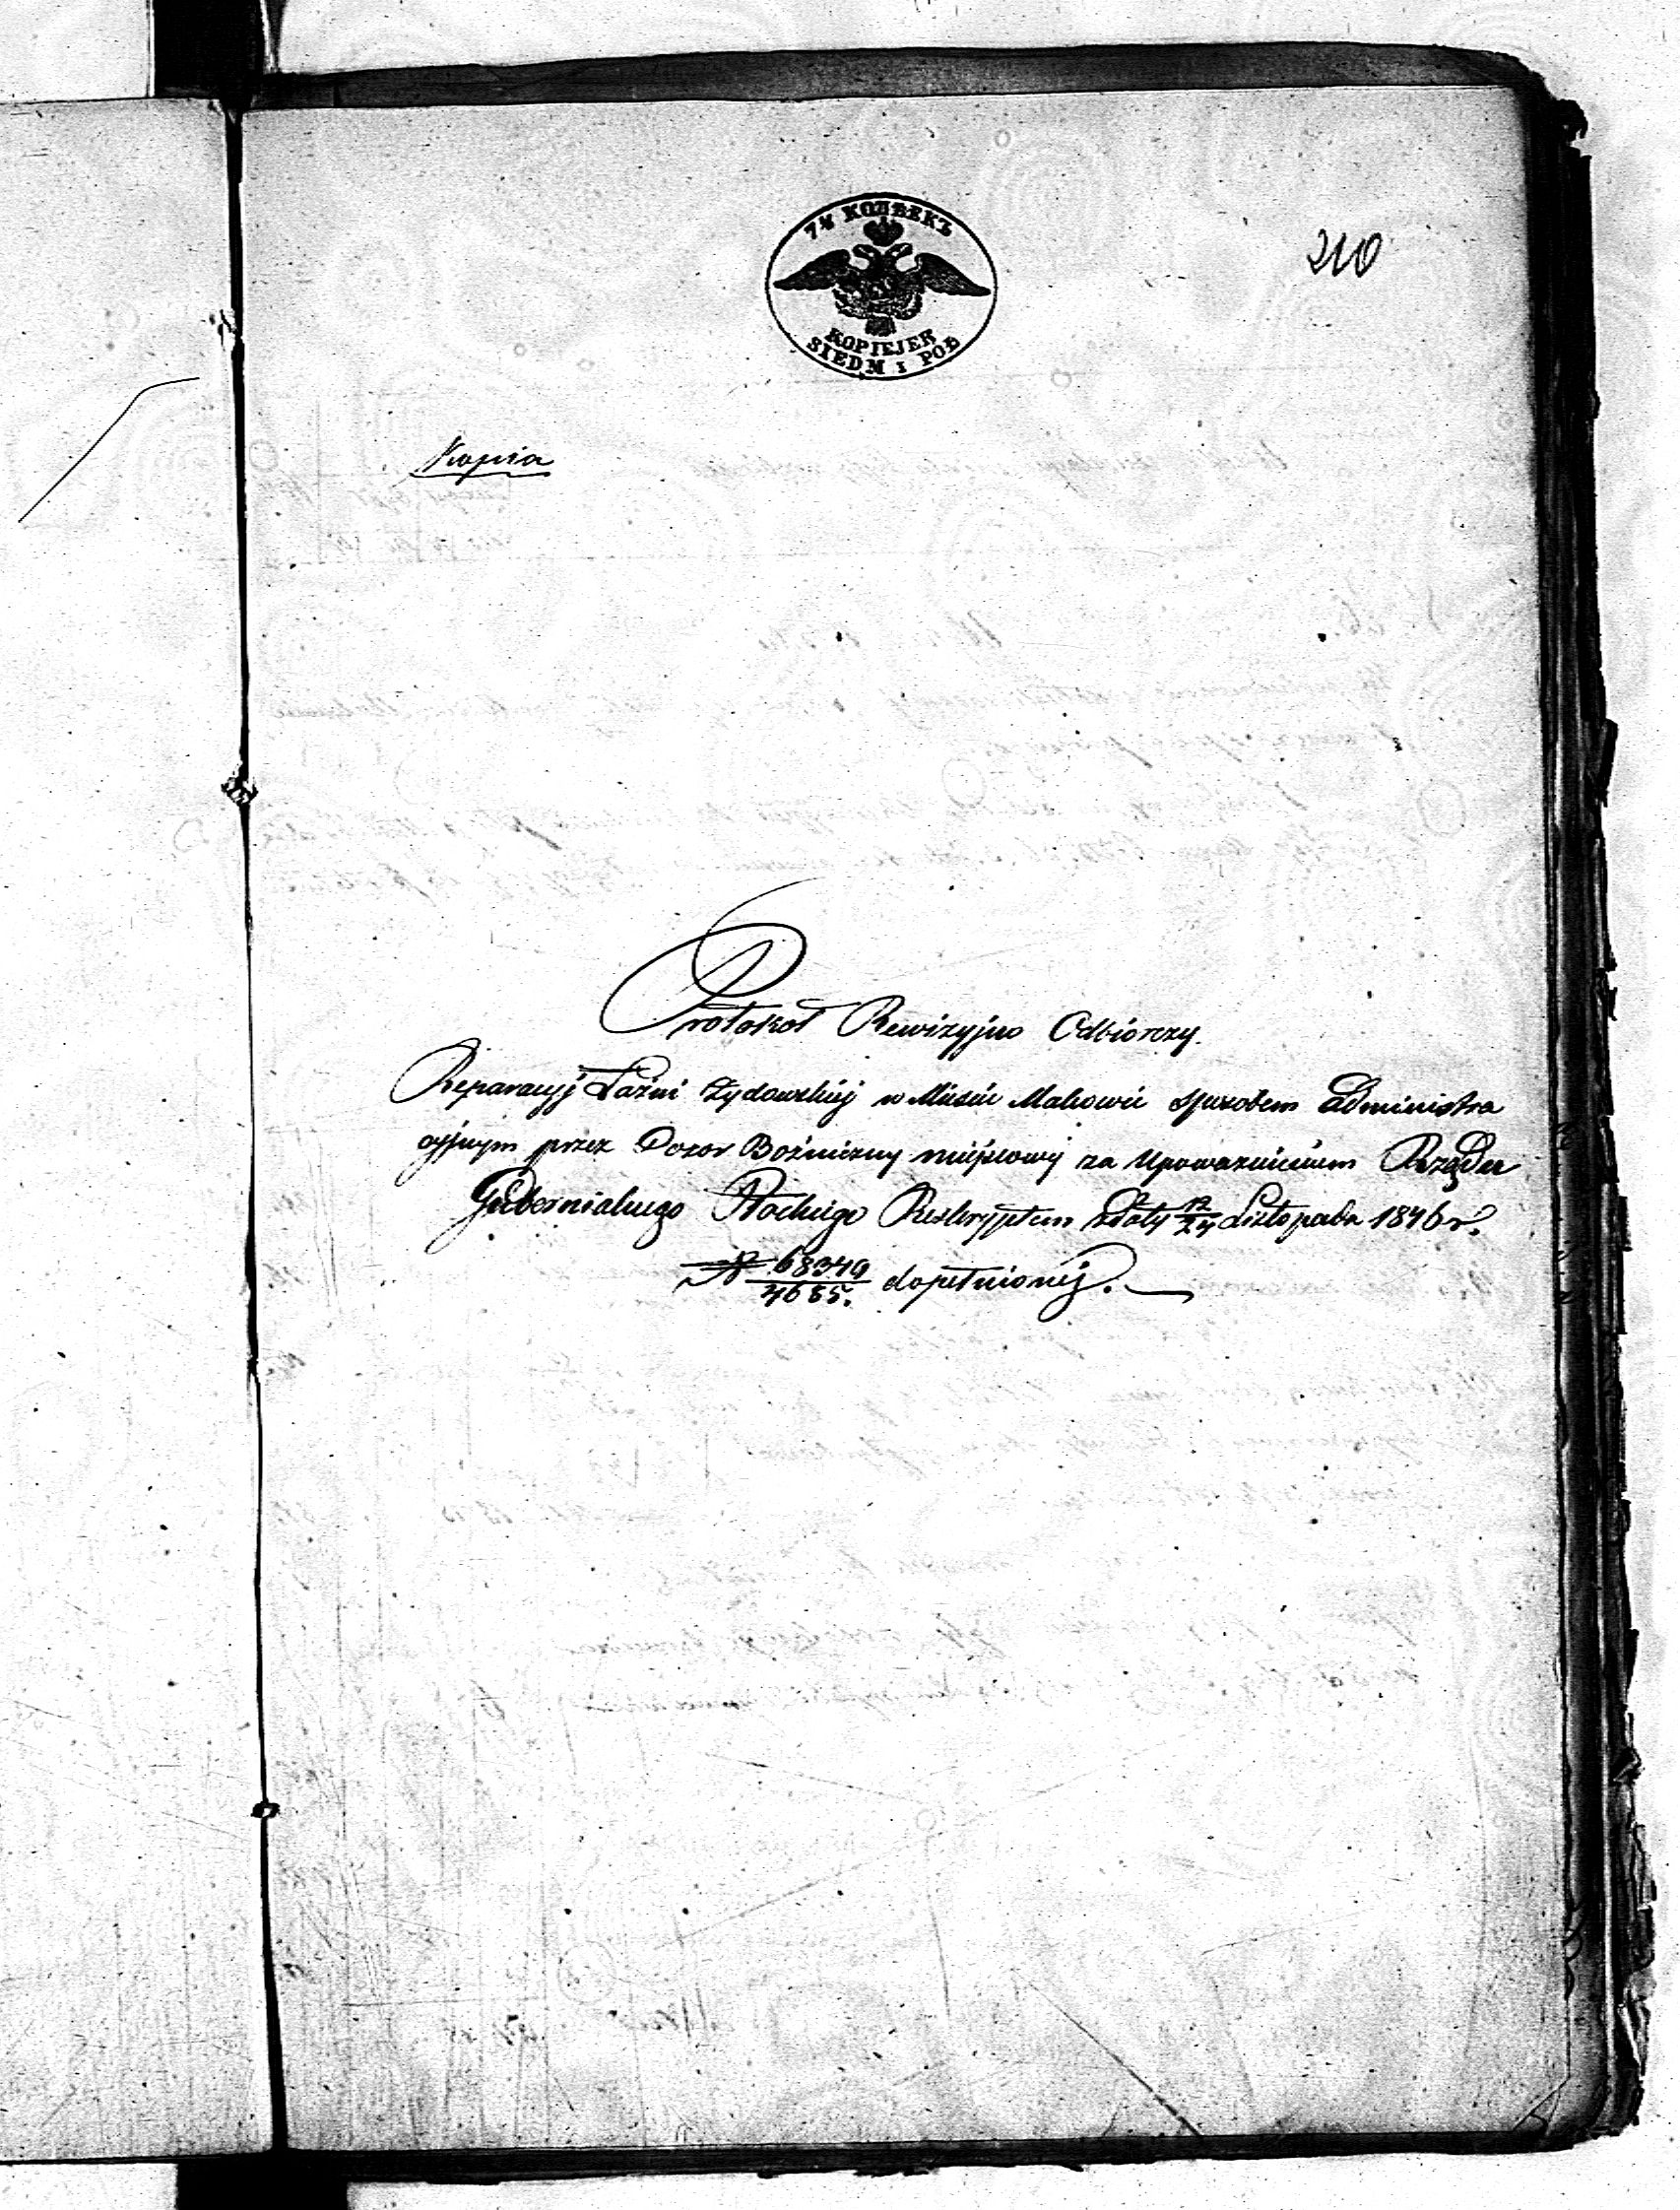 7½ КОПѢЕКЪ
KOPIEJEK
SIEDM I POŁ
210
Kopia
Protokoł Rewizyjno Odbiorczy.
Reparacyj Łaźni Żydowskiéj w Mieście Makowie sposobem Administra
cyjnym przez Dozor Bożniczny miéjscowy za Upoważnieniem Rządu
Gubernialnego Płockiego Reskryptem z daty 12/24 Listopada 1846 r.
N 68349/4685. dopełnionéj.